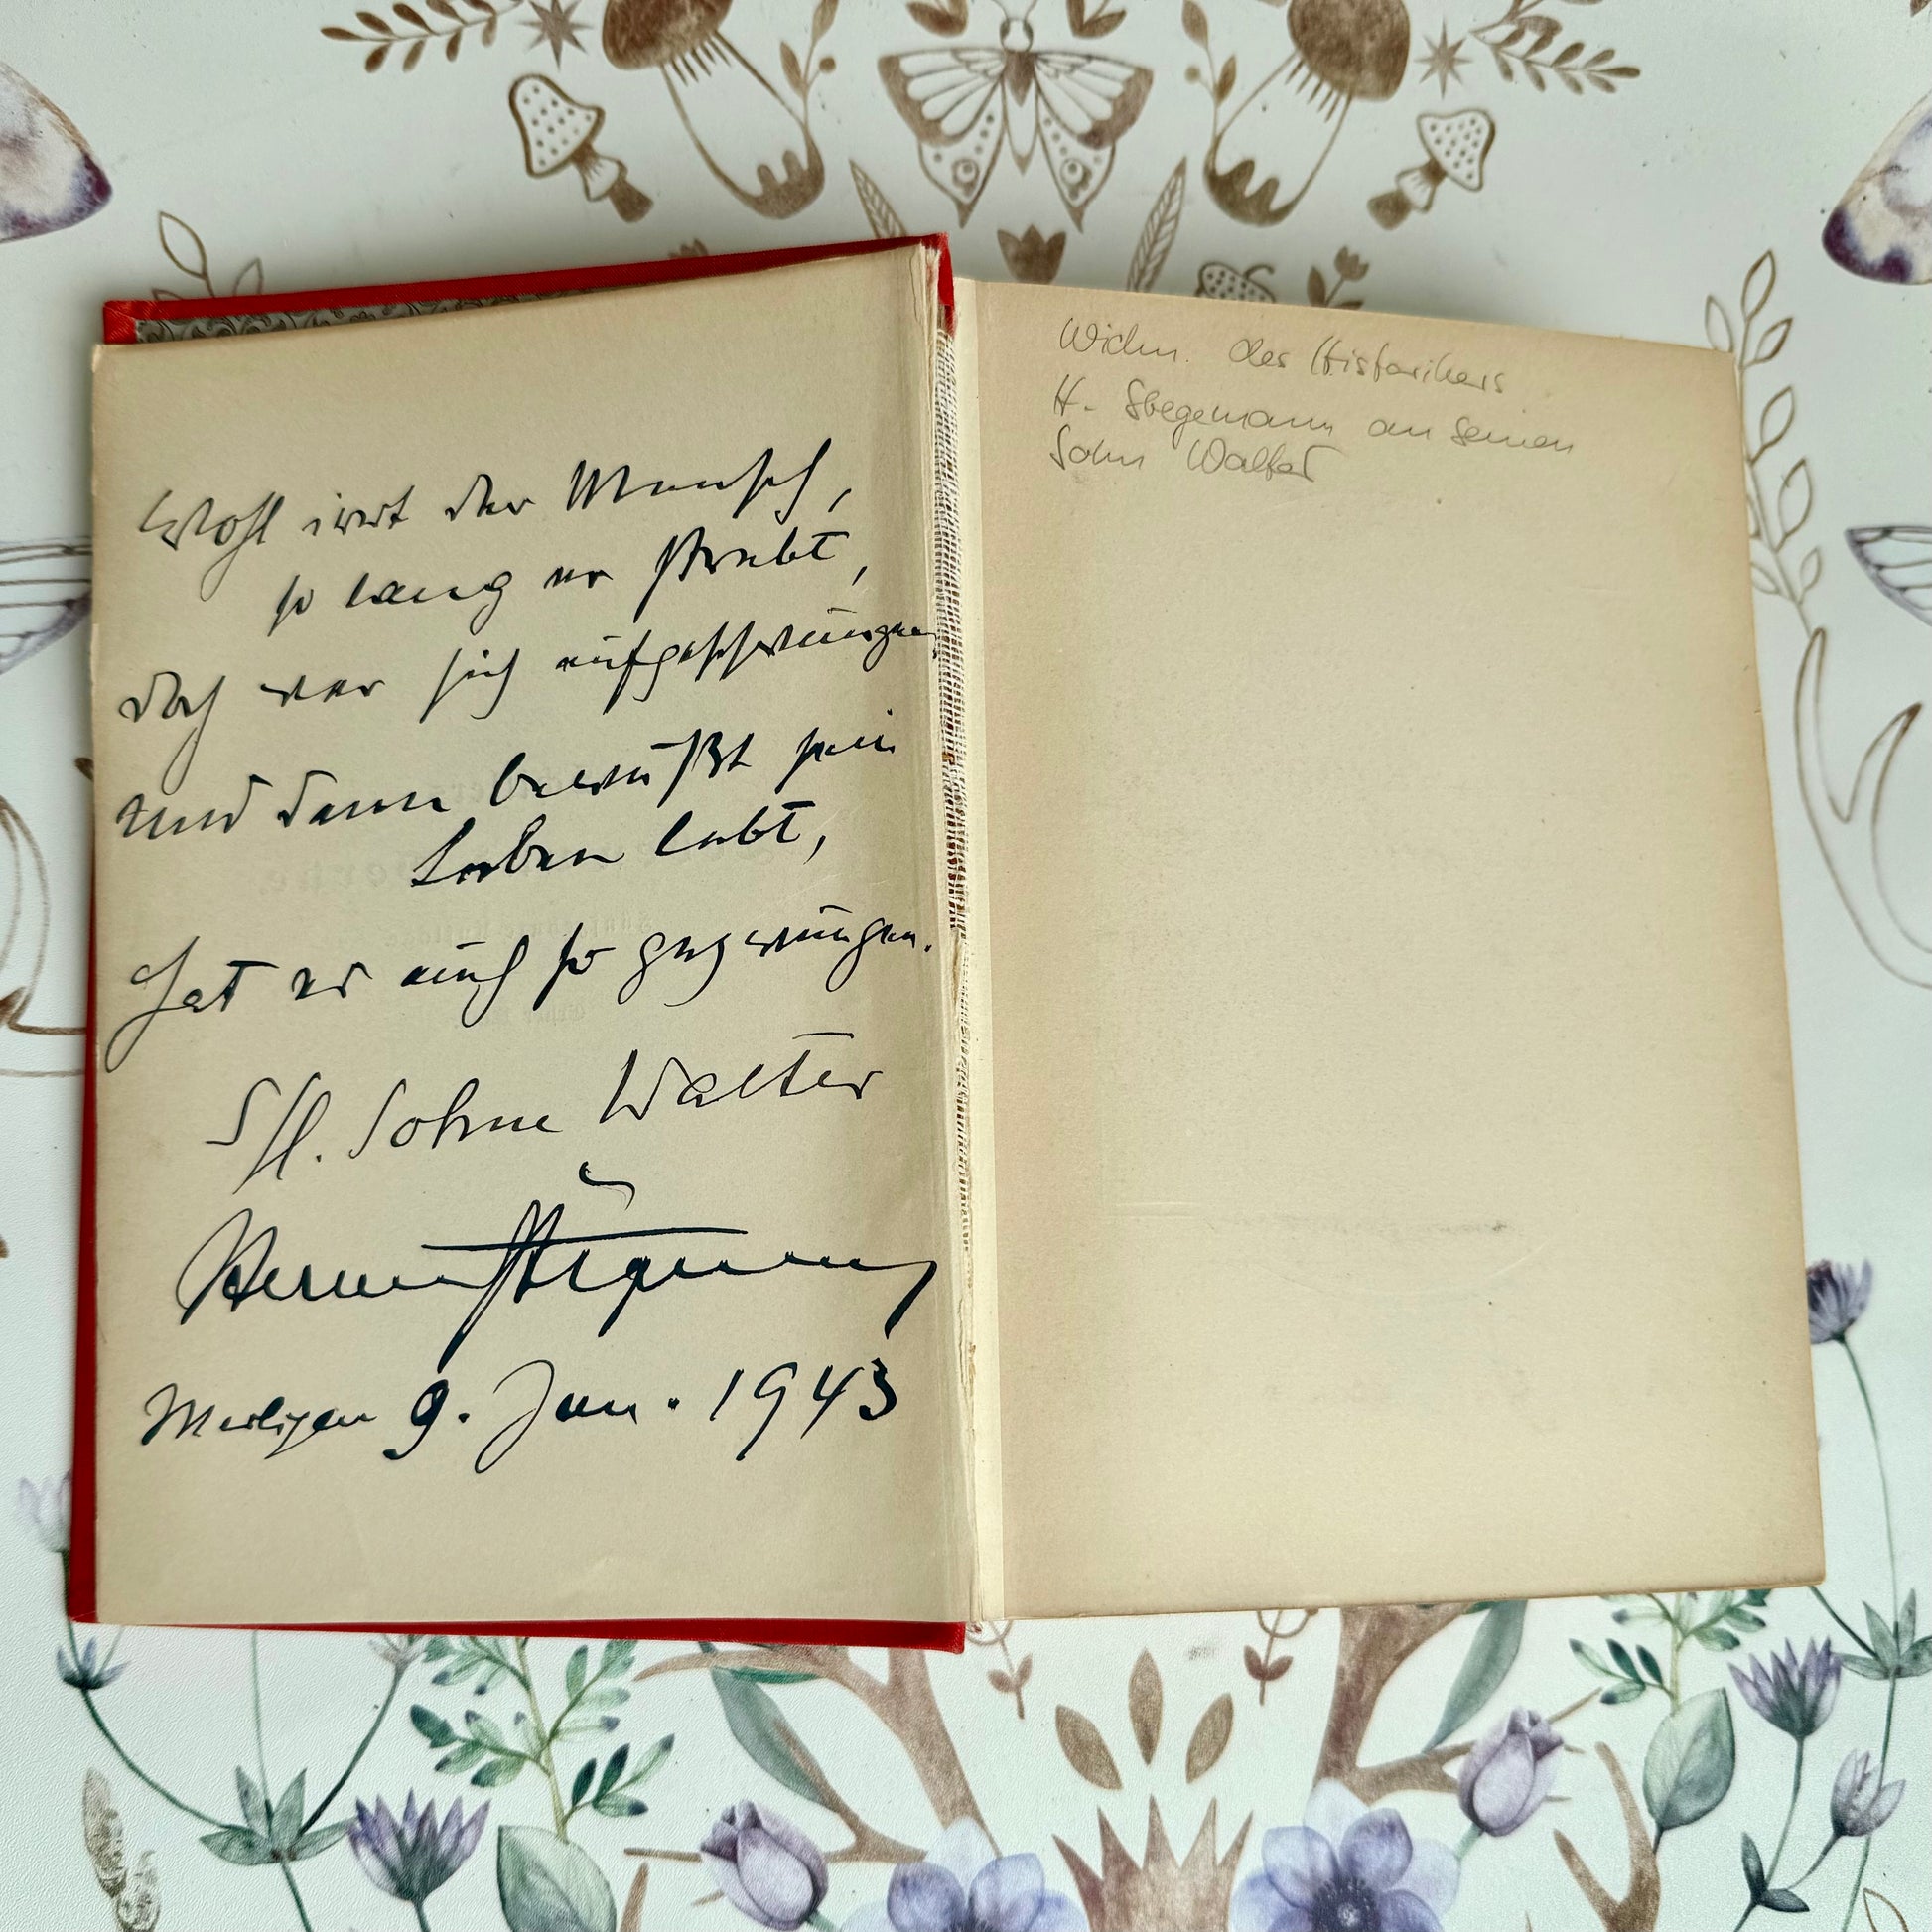 Wohl irrt der Mensch,
so lang er strebt,
doch wer sich aufgeschwungen
und dann bewußt sein
Leben lebt,
hat es auch so gezwungen.
Sohne Walter
Hermann Stegemann
Merligen 9. Jun. 1943
Widm. des Historikers
H. Stegemann an seinen
Sohn Walter